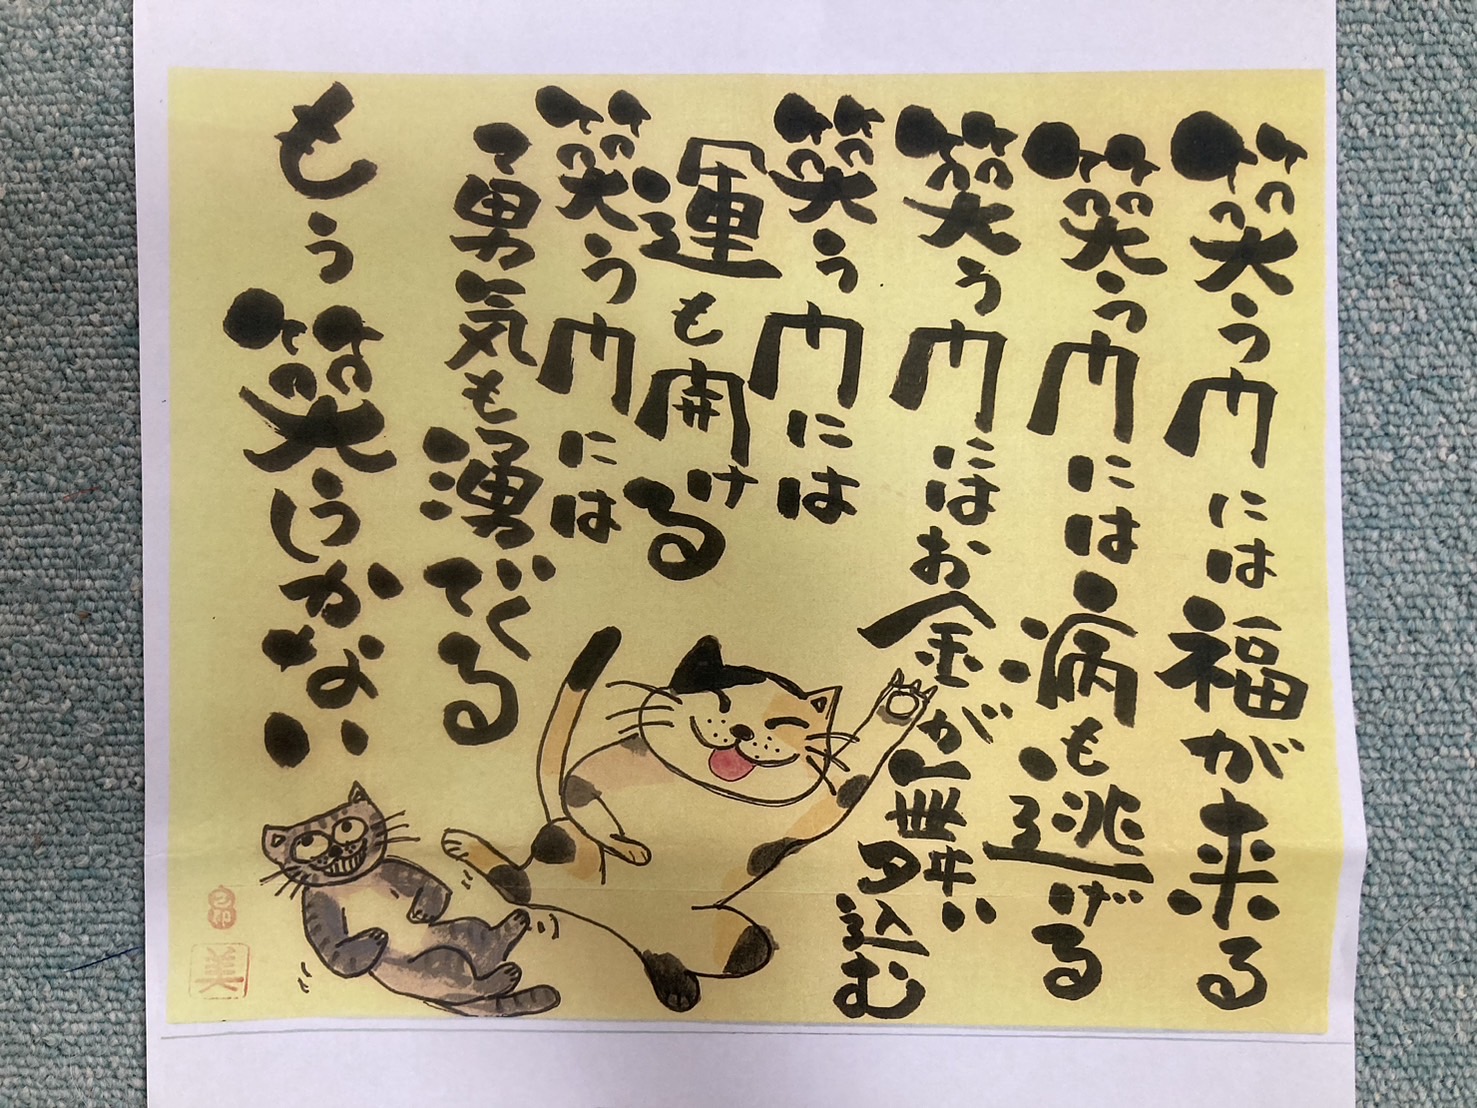 笑う門には福が来る
笑う門には病も逃げる
笑う門にはお金が舞い込む
笑う門には
運も開ける
笑う門には
勇気も湧でくる
もう笑うしかない
美